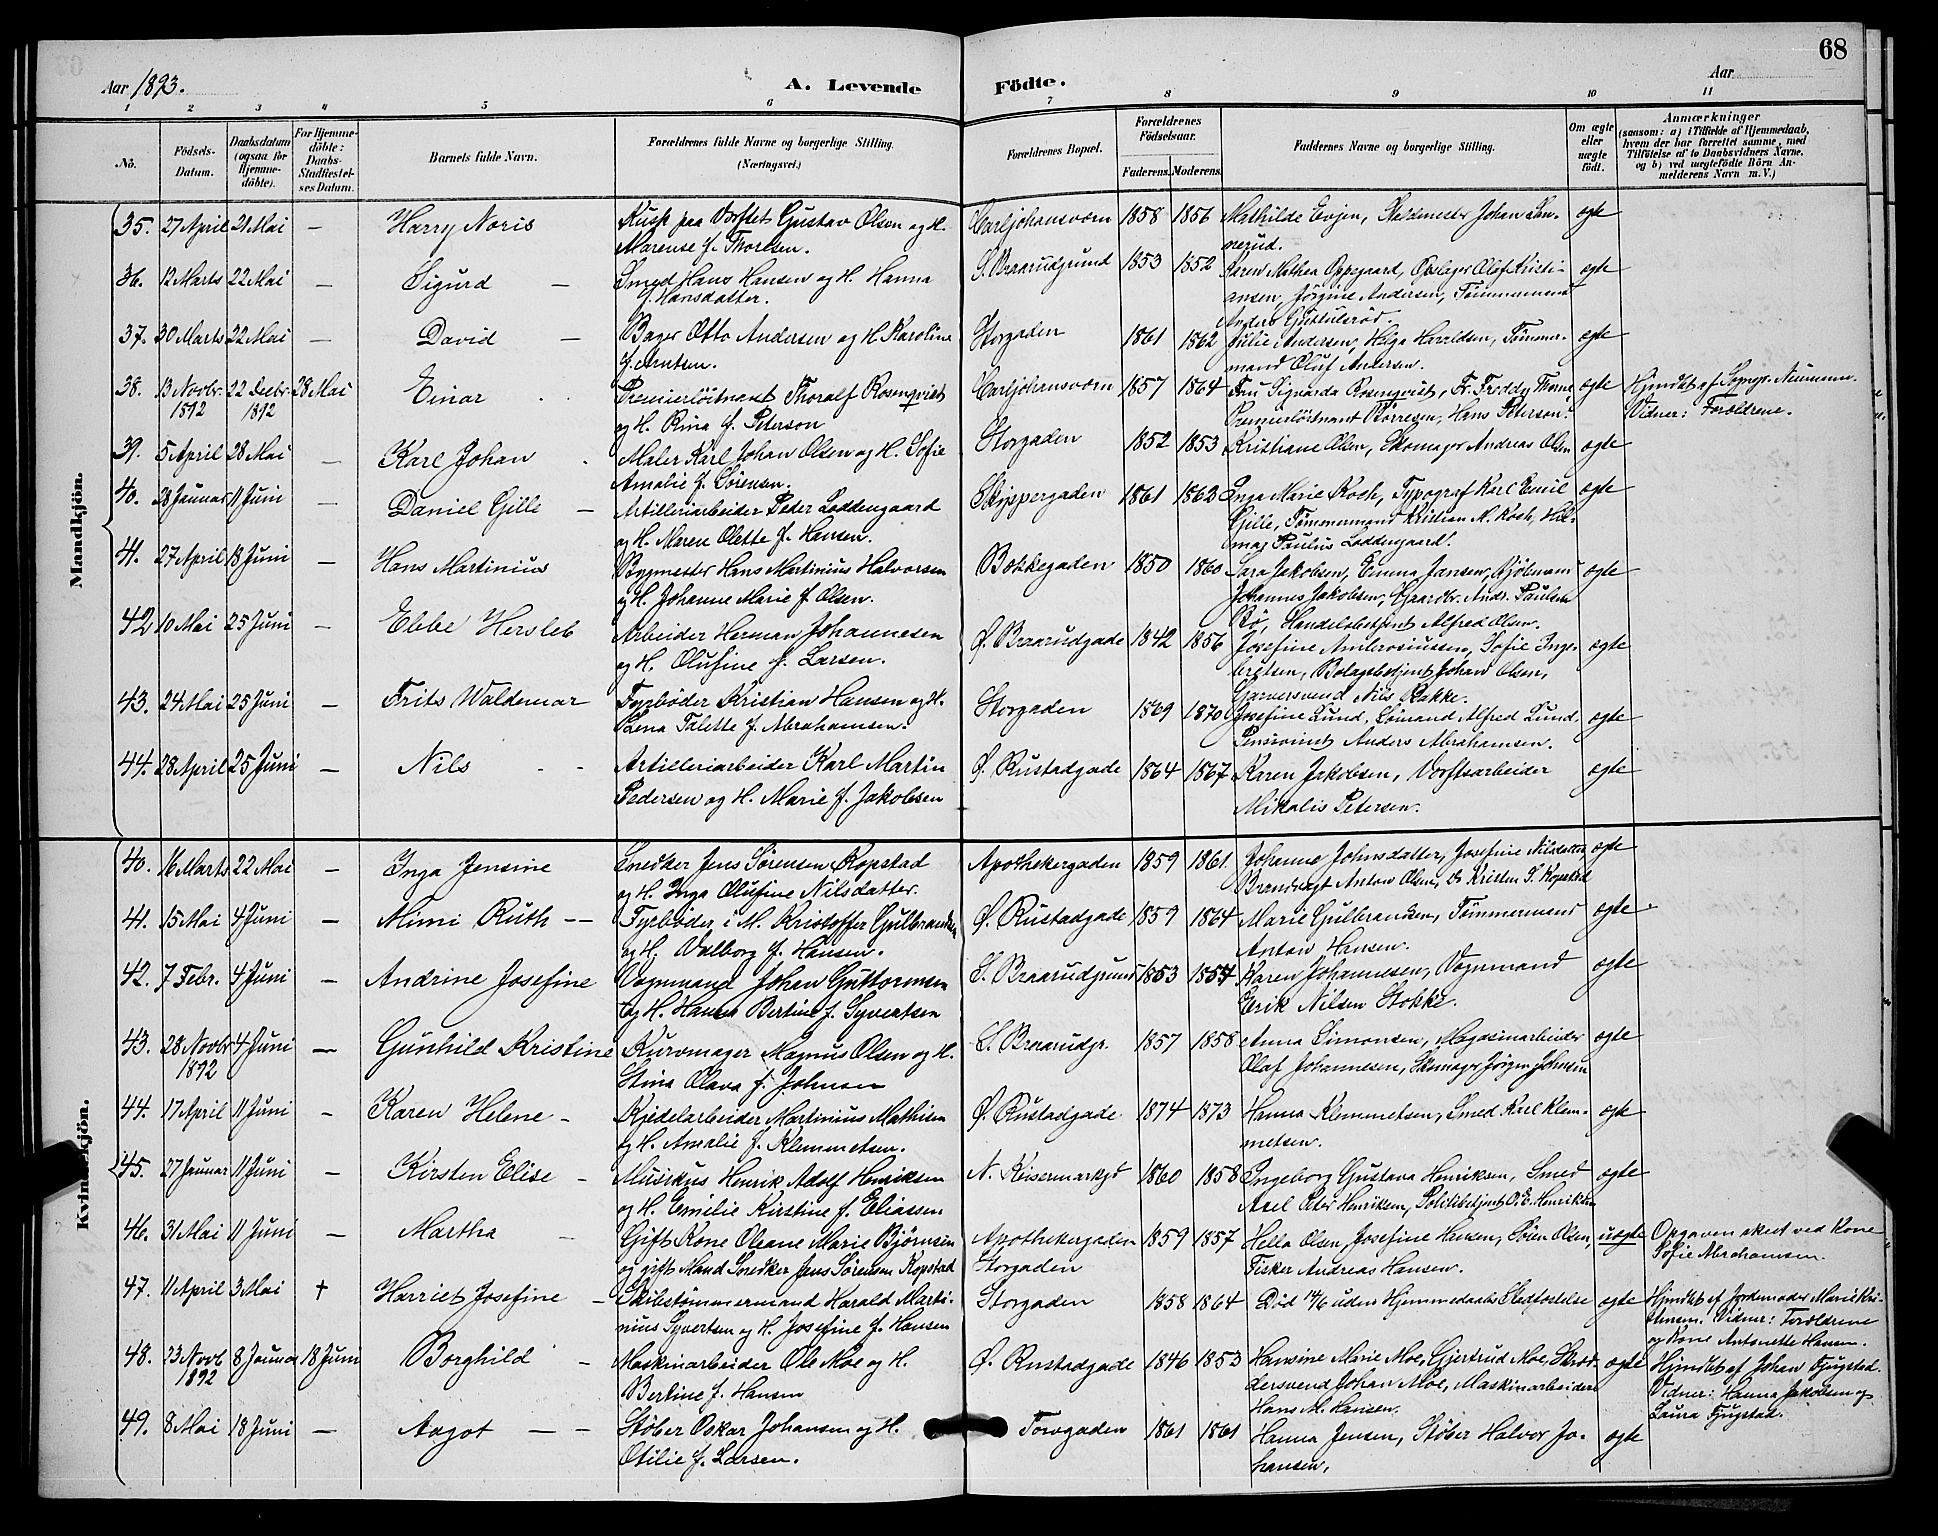 68
Aar 1893. A. Levende Födte. Aar
1 2 3 4 5 6 7 8 9 10 11
No. Födsels-Datum. Daabsdatum (ogsaa for Hjemme-döbte). For Hjemme-döbte: Daabs-Stadfæstel-ses Datum. Barnets fulde Navn. Forældrenes fulde Navne og borgerlige Stilling. (Næringsvei.) Forældrenes Bopæl. Forældrenes Födselsaar. Faderens. Moderens. Faddernes Navne og borgerlige Stilling. Om ægte eller uægte födt. Anmærkninger (saasom: a) i Tilfælde af Hjemmedaab, hvem der har forrettet samme, med Tilföielse af to Daabsvidners Navne, og b) ved uægtefödte Börn Anmelderens Navn m. V.)
Mandkjön.
35. 27 April 21 Mai — Harry Noris Kusk paa Værftet Gustav Olsen og H. Carljohansværn 1858 1856 Mathilde Evjen, Johan San- ægte
Marense f. Thoresen. nerud.
36. 12 Marts 22 Mai — Sigurd — Smed Hans Hansen og H. Hanna S. Braarudgrund 1853 1852 Karen Mathea Oppegaard, Opslager Olaf Kristi- ægte
f. Hansdatter. ansen, Jørgine Andersen, Tømmermand
Anders
37. 30 Marts 22 Mai — David — Bager Otto Andersen og H. Karoline Storgaden 1861 1862 Julie Andersen, Helga Haraldsen, Tømmer- ægte
f. Arntsen. mand Oluf Andersen.
38. 13 Novbr. 22 Decbr. 28 Mai Einar Premierløitnant Thoralf Rosenqvist Carljohansværn 1857 1864 Fru Signarda Rosenqvist, Fr. Freddy Thorne, ægte Hjmdbt af Sognepr. Neumann.
1892 1892 og H. Rina f. Peterson Premierløitnant Børresen, Hans Peterson. Vidner: Forældrene.
39. 5 April 28 Mai — Karl Johan Maler Karl Johan Olsen og H. Sofie Storgaden 1852 1853 Kristiane Olsen, Skomager Andreas Olsen ægte
Amalie f. Sørensen.
40. 28 Januar 11 Juni — Daniel Gille — Artilleriarbeider Peder Loddengaard Skippergaden 1861 1862 Inga Marie Koch, Typograf Karl Emil ægte
og H. Maren Olette f. Hansen. Gille, Tømmermand Kristian M. Koch, Hil-
mar Paulus Loddengaard.
41. 27 April 18 Juni — Hans Martinius Bygmester Hans Martinius Halvorsen Bekkegaden 1850 1860 Sara Jakobsen, Emma Jansen, Kjøbmand ægte
og H. Johanne Marie f. Olsen. Johannes Jakobsen, Gaardbr. Andr. Paulsen
Bø, Handelsbetjent Alfred Olsen.
42 10 Mai 25 Juni — Ebbe Hersleb Arbeider Herman Johannesen Ø. Braarudgade 1842 1856 Josefine Ambrosiussen, Sofie Inge- ægte
og H. Olufine f. Larsen. bretsen, Bolagsbetjent Johan Olsen,
Garversvend Nils Bakke.
43. 24 Mai 25 Juni — Frits Waldemar Fyrbøder Kristian Hansen og H. Storgaden 1869 1870 Josefine Lund, Sømand Alfred Lund. ægte
Lena Talette f. Abrahamsen. Pensionist Anders Abrahamsen.
44. 28 April 25 Juni — Nils Artilleriarbeider Karl Martin Ø. Rustadgade 1864 1867 Karen Jakobsen, Værftsarbeider ægte
Pedersen og H. Marie f. Jakobsen Mikalis Petersen.
Kvindekjön.
40. 16 Marts 22 Mai — Inga Jensine Snedker Jens Sørensen Kopstad Apothekergaden 1859 1861. Johanne Johnsdatter, Josefine Nilsdatter, ægte
og H. Inga Olufine Nilsdatter. Brandvagt Anton Olsen, Kristen S. Kopstad
41. 15 Mai 4 Juni — Mimi Ruth — Fyrbøder i M. Kristoffer Gulbrandsen Ø. Rustadgade 1859 1864 Marie Gulbrandsen, Tømmermand ægte
og H. Valborg f. Hansen. Anton Hansen.
42. 7 Febr. 4 Juni — Andrine Josefine Vognmand Johan Guttormsen S. Braarudgrund 1853 1854 Karen Johannesen, Vognmand ægte
og H. Hanna Bertine f. Syvertsen Erik Nilsen Stokke.
43. 28 Novbr 4 Juni — Gunhild Kristine Kurvmager Magnus Olsen og H. S. Braarudgr. 1857 1858 Anna Simonsen, Magasinarbeider ægte
1892 Stina Olava f. Johnsen Olaf Johannesen, Skomager Jørgen Johnsen
44. 17 April 11 Juni — Karen Helene — Kjedelarbeider Martinius Mathisen Ø. Rustadgade 1874 1873 Hanna Klemmetsen, Smed Karl Klem- ægte
og H. Amalie f. Klemmetsen. metsen.
45. 27 Januar 11 Juni — Kirsten Elise — Musikus Henrik Adolf Henriksen N. Keisermarkgd 1860 1858 Ingeborg Gustava Henriksen, Smed ægte
og H. Emilie Kirstine f. Eliassen Axel Peter Henriksen, Politibetjent O. E. Henriksen
46. 31 Mai 11 Juni — Martha — Gift Kone Oleane Marie Bjørnsen Apothekergaden 1859 1857 Hella Olsen, Josefine Hansen, Søren Olsen, uægte Opgaven skeet ved Kone
og gift Mand Snedker Jens Sørensen Kopstad Storgaden Fisker Andreas Hansen. Sofie Abrahamsen.
47. 11 April 3 Mai † Harriet Josefine — Skibstømmermand Harald Marti- Storgaden 1858 1864 Død 14/6 uden Hjemmedaabs Stadfæstelse ægte Hjmdbt af Jordemoder Marie Kri-
nius Syvertsen og H. Josefine f. Hansen stensen. Vidner: Forældrene
og Kone Antonette Hansen.
48. 23 Novb 8 Januar 18 Juni Borghild — Maskinarbeider Ole Moe og H. Ø. Rustadgade 1846 1853 Hansine Marie Moe, Gjertrud Moe, Skræd- ægte Hjmdbt af Johan Fjugstad.
1892 Bertine f. Hansen dersvend Johan Moe, Maskinarbeider Vidner: Hanna Jakobsen og
Hans M. Hansen. Laura Fjugstad.
49. 8 Mai 18 Juni — Aagot — Støber Oskar Johansen og H. Torvgaden 1861 1861 Hanna Jensen, Støber Halvor Jo- ægte
Otilie f. Larsen. hansen,